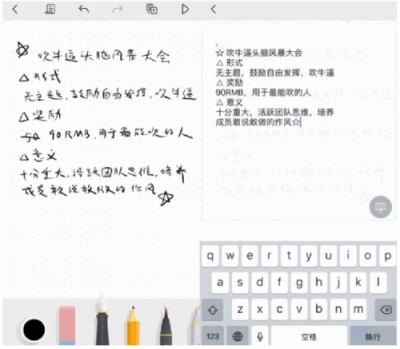 ☆吹牛逼头脑风暴大会
△形式
无主题,鼓励自由发挥,吹牛逼
△奖励
50 90RMB,用于最能吹的人
△意义
十分重大,活跃团队思维,培养
成员敢说敢做的作风☆
☆ 吹牛逼头脑风暴大会
△ 形式
无主题,鼓励自由发挥、吹牛逼
△ 奖励
90RMB,用于最能吹的人
△ 意义
十分重大,活跃团队思维,培养
成员敢说敢做的作风☆
q w e r t y u i o p
a s d f g h j k l
z x c v b n m
123 空格 换行